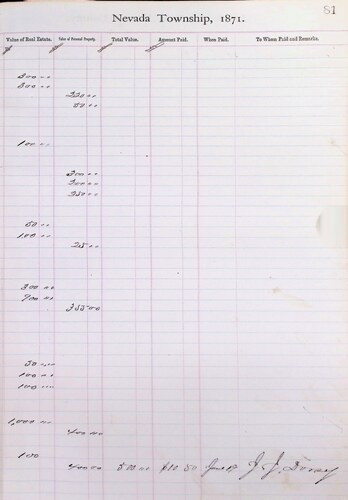 81
Nevada Township, 1871.
Value of Real Estate. Value of Personal Property. Total Value. Amount Paid. When Paid. To Whom Paid and Remarks.
300 00
300 00
220 00
50 00
100 00
300 00
300 00
250 00
50 00
100 00
25 00
300 00
700 00
355 00
50 00
100 00
100 00
1,000 00
400 00
100
400 00 500 00 $10.50 June 17 J. J.